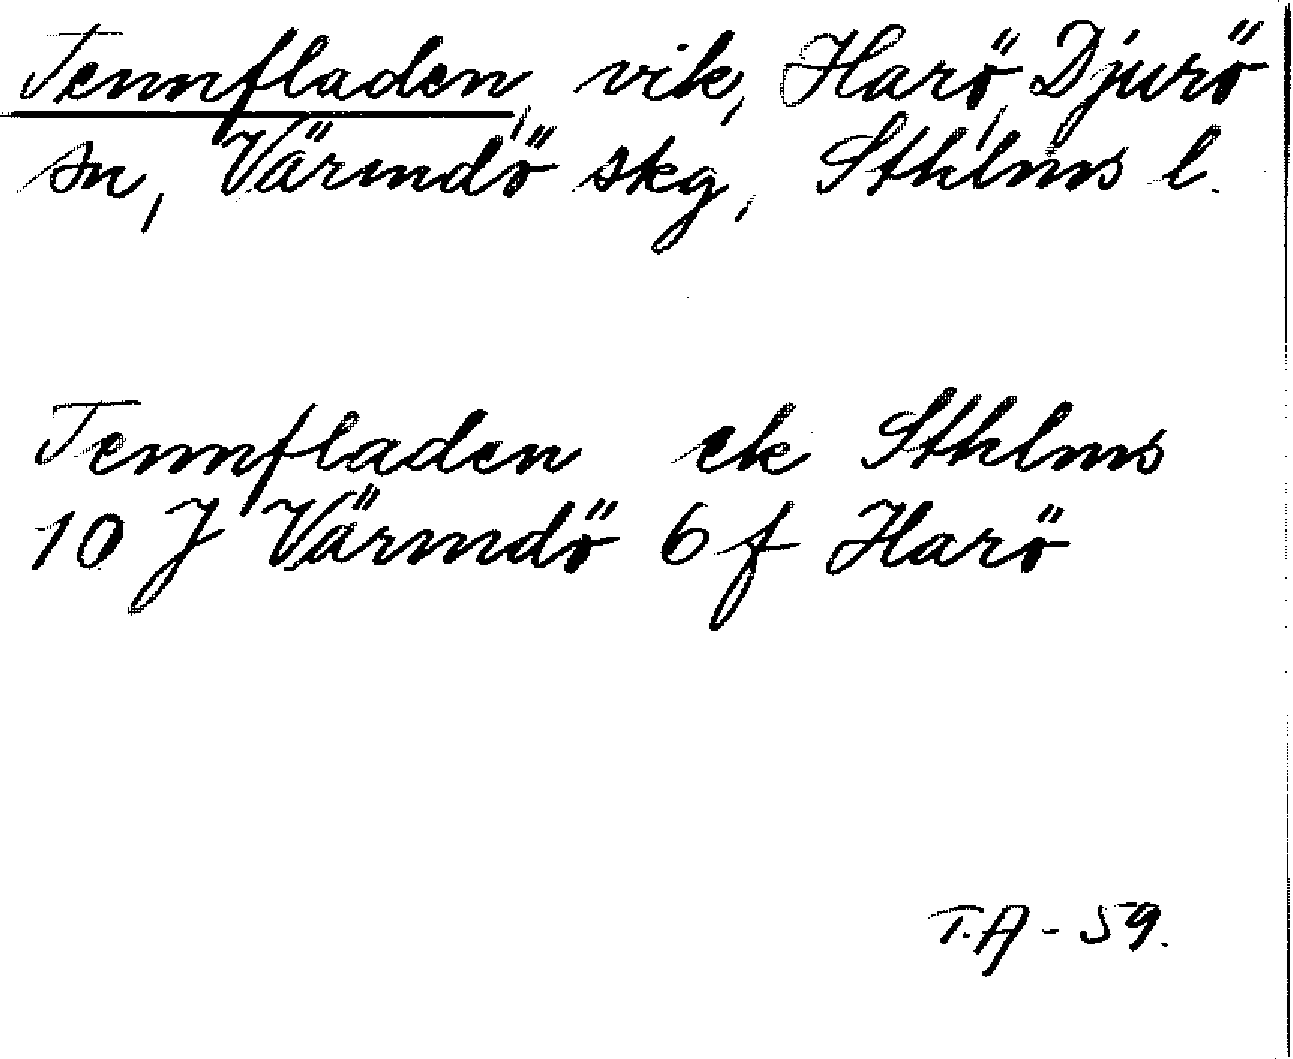 Tennfladen, vik, Harö, Djurö
sn, Värmdö skg, Sthlms l.
Tennfladen ek Sthlms
10 J Värmdö 6 f Harö
T.A - 59.